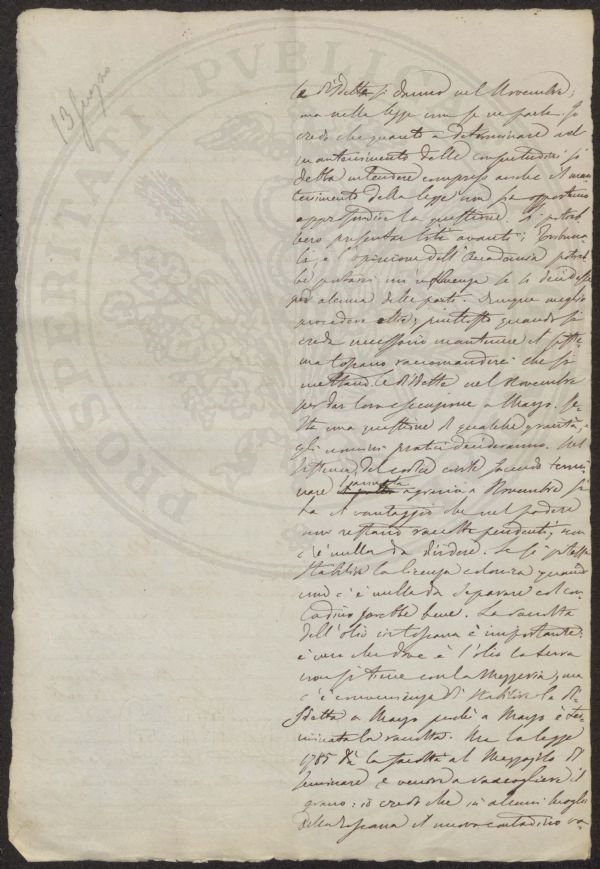 13 Giugno
le disdette si danno nel Novembre;
ma nella legge non se ne parla. Io
credo che quanto a determinare nel
mantenimento delle consuetudini si
debba intendere compreso anche il man-
tenimento della legge non sia opportuno
approfondire la questione. Si potreb-
bero presentar liti avanti i Tribuna-
li, e l'opinione dell'Accademia potreb-
be portarvi un'influenza se si decidesse
per alcuna delle parti. Dunque meglio
procedere oltre; piuttosto quando si
creda necessario mantenere il siste-
ma toscano raccomanderei che si
mettano le disdette nel Novembre
per dar loro esecuzione a Marzo. Re-
sta una questione di qualche gravità, e
gli uomini pratici decideranno. Nel
sistema del codice civile facendo termi-
nare l'annata agraria a Novembre si
ha il vantaggio che nel podere
non restano raccolte pendenti, non
c'è nulla da dividere. Se si potesse
stabilire la licenza colonica quando
non c'è nulla da separare col con-
tadino sarebbe bene. La raccolta
dell'olio in toscana è importante:
è vero che dove è l'olio la terra
non si tiene con la Mezzeria, ma
c'è convenienza di stabilire la di-
sdetta a Marzo perchè a Marzo è ter-
minata la raccolta. Ma la legge
1785 dà la facoltà al Mezzajolo di
seminare e venire a raccogliere il
grano: io credo che in alcuni luoghi
della Toscana il nuovo contadino va-
PROSPERITATI PUBLICAE